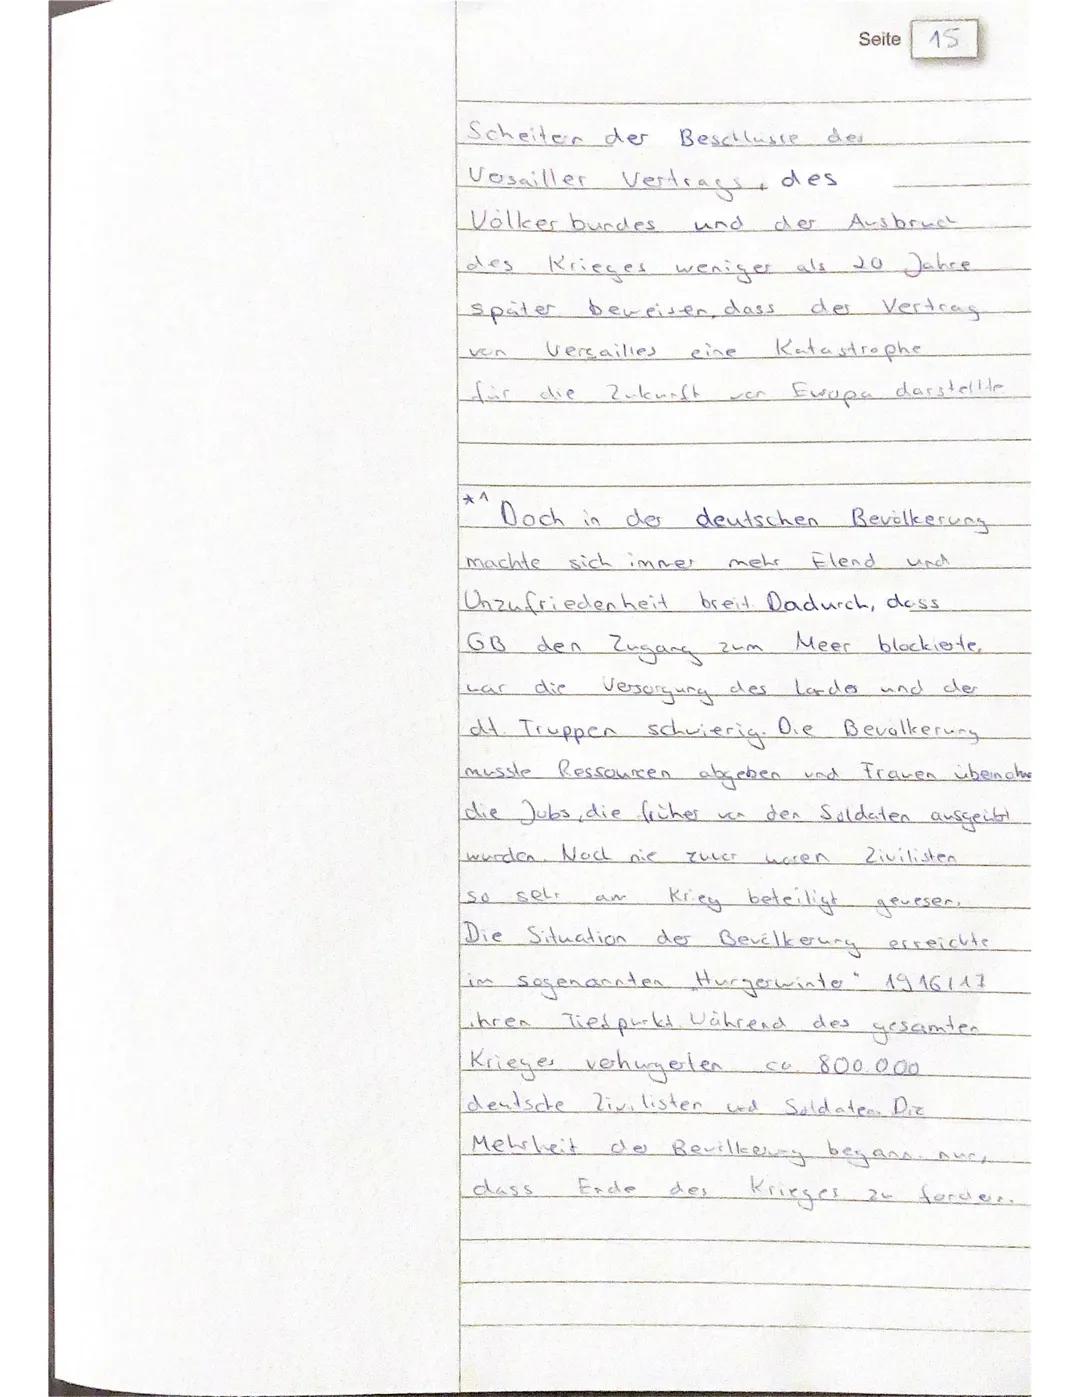 Seite 15
Scheitern der Beschlüsse des
Versailler Vertrags, des
Völkerbundes und der Ausbruch
des Krieges weniger als 20 Jahre
später beweisen, dass der Vertrag
von Versailles eine Katastrophe
für die Zukunft von Europa darstellte
*1 Doch in der deutschen Bevölkerung
machte sich immer mehr Elend und
Unzufriedenheit breit. Dadurch, dass
GB den Zugang zum Meer blockierte,
war die Versorgung des Landes und der
dt. Truppen schwierig. Die Bevölkerung
musste Ressourcen abgeben und Frauen
die Jobs, die früher von den Soldaten ausgeübt
wurden. Noch nie zuvor waren Zivilisten
so sehr am Krieg beteiligt gewesen.
Die Situation der Bevölkerung erreichte
im sogenannten „Hungerwinter" 1916/17
ihren Tiefpunkt. Während des gesamten
Krieges verhungerten ca. 800.000
deutsche Zivilisten und Soldaten. Die
Mehrheit der Bevölkerung begann nun,
dass Ende des Krieges zu fordern.